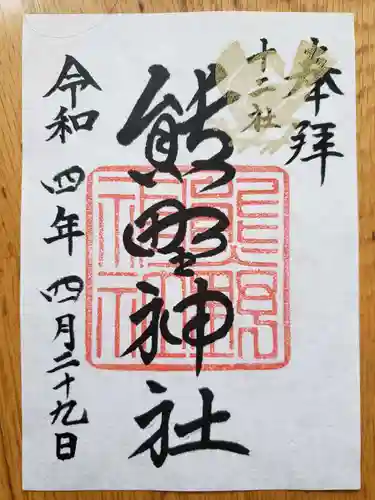 奉拝
十二社
熊野神社
令和四年四月二十九日
熊野神社